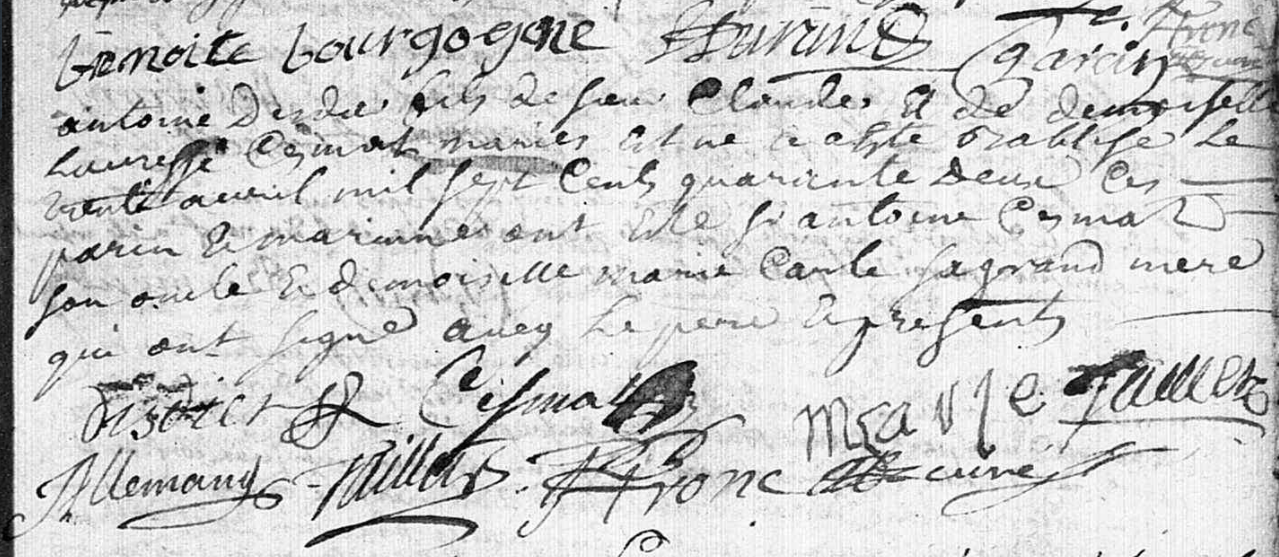 benoite bourgogne Durand garcin
antoine Disdier fils de sieur Claude Et de demoiselle
Lucresse Cesmat mariés Est né a esté Batisé Le
trente avril mil sept Cents quarante Deux Ces
parin & marinne ont Esté sr antoine Cesmat
son oncle & demoiselle marie Carle sa grand mere
qui ont signé aveq Le pere & presents
Disdier Ceismat marie
Allemand Taillas Fronc curé